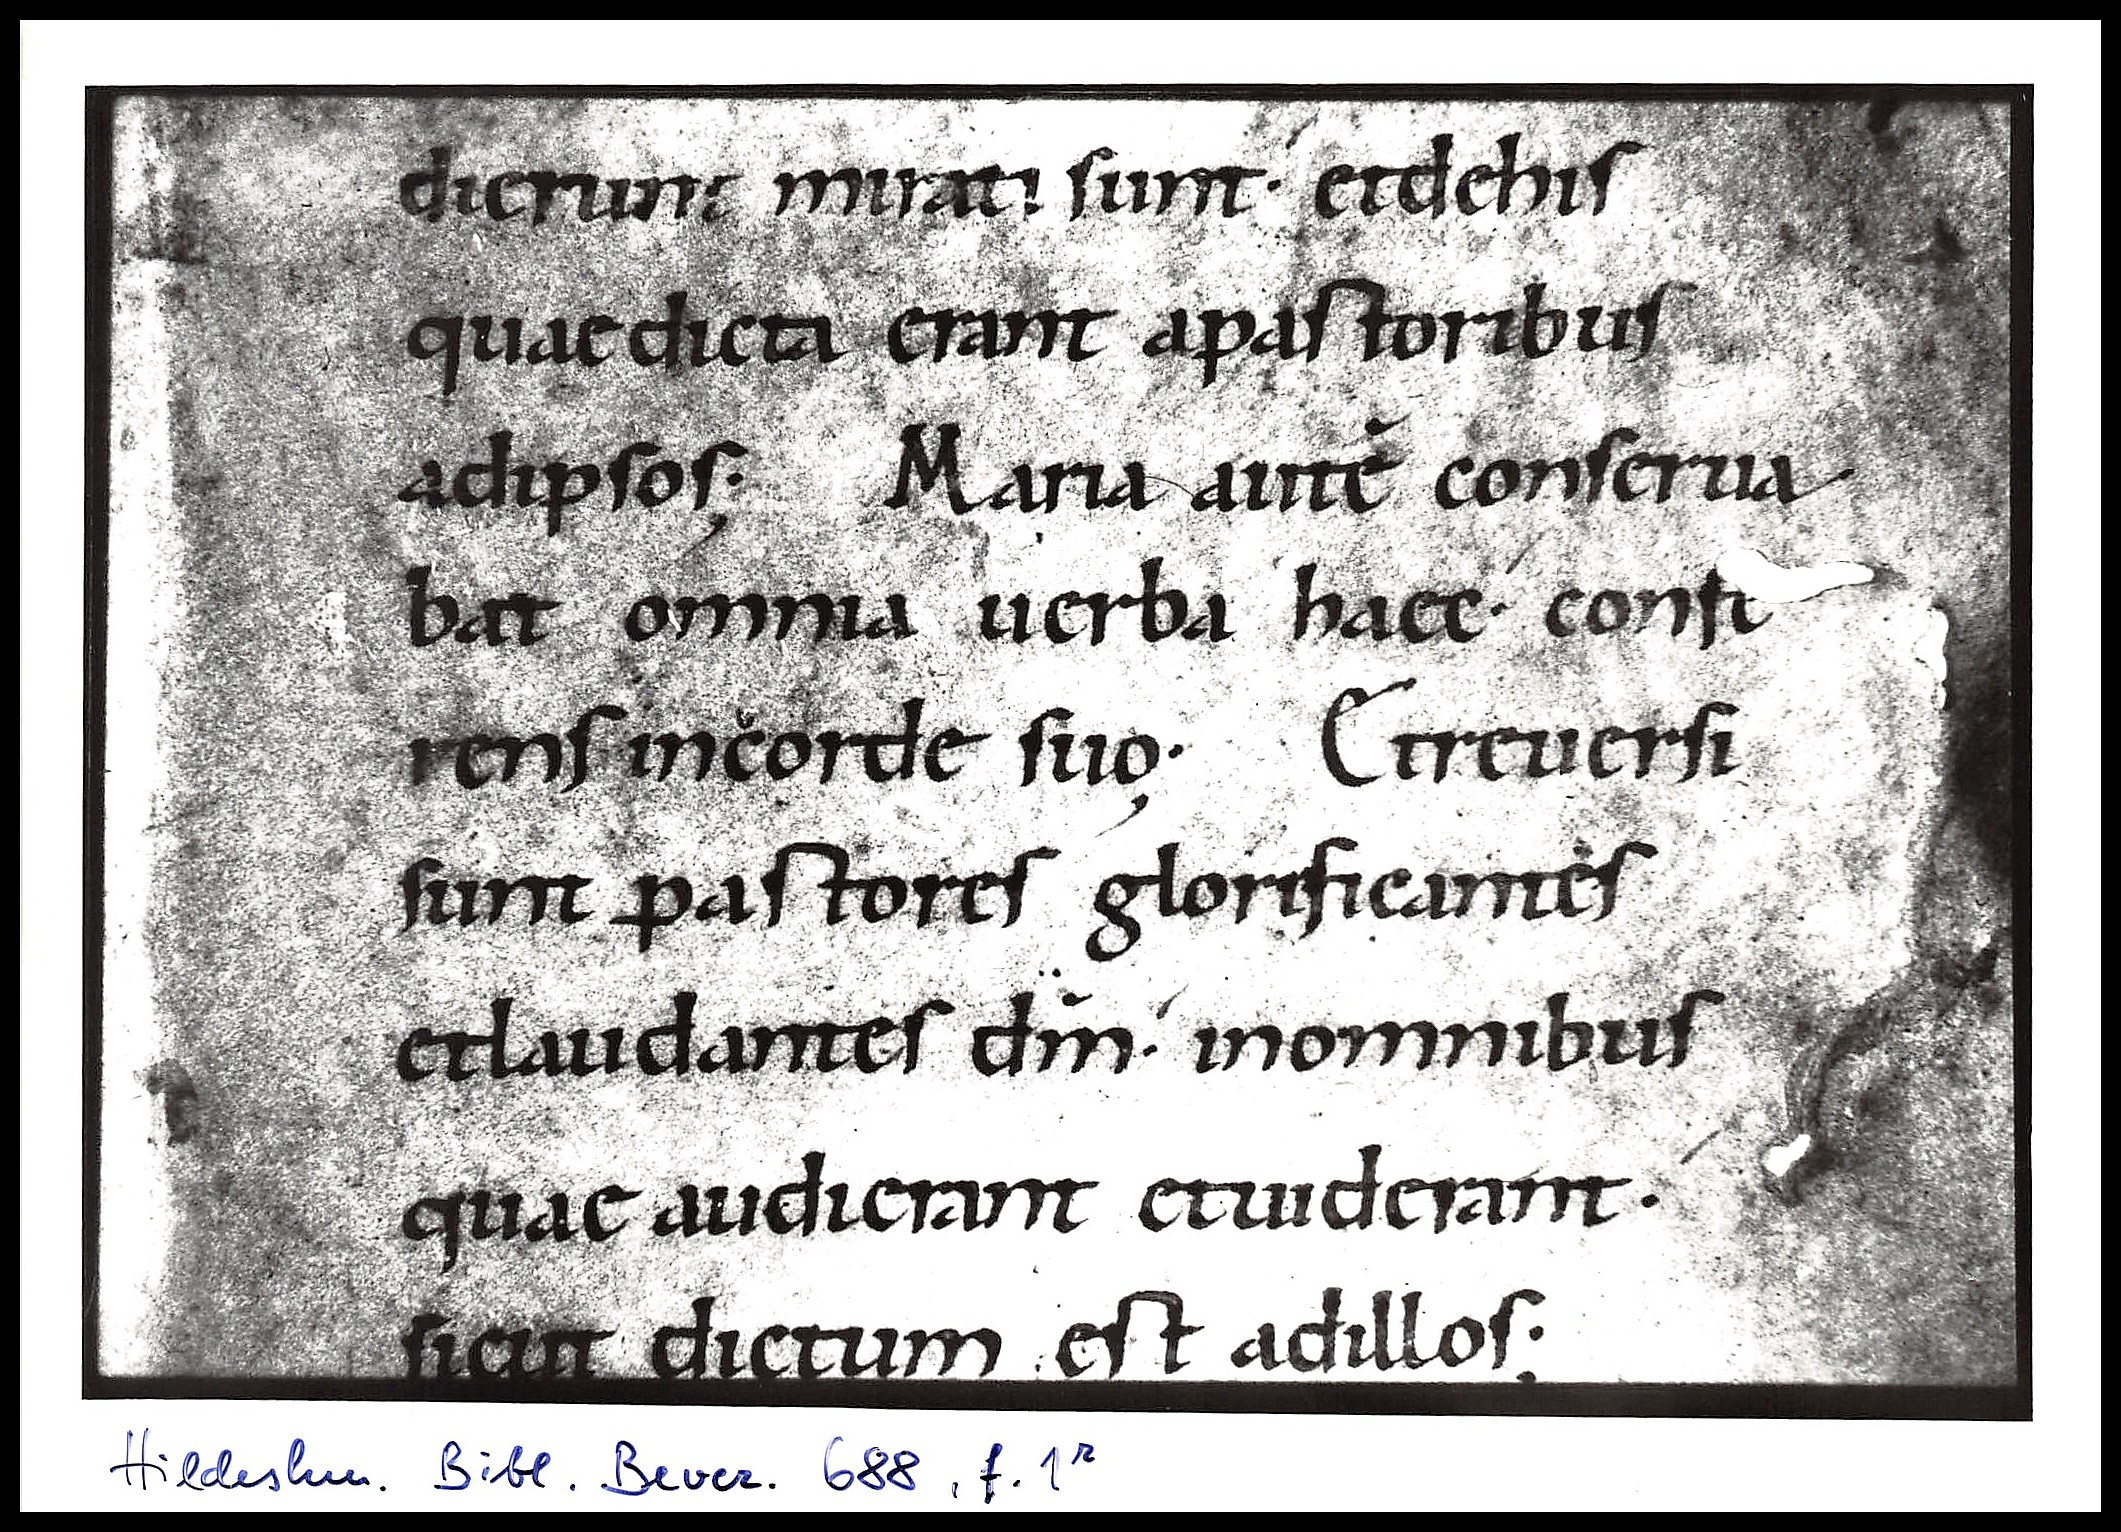 dierunt mirati sunt· etdehis
quaedicta erant apastoribus
adipsos; Maria autē conserua
bat omnia uerba haec· confe
rens incorde suo; Etreuersi
sunt pastores glorificantes
etlaudantes dm̄· inomnibus
quae audierant etuiderant·
sicut dictum est adillos;
Hildeshm. Bibl. Bever. 688, f. 1r